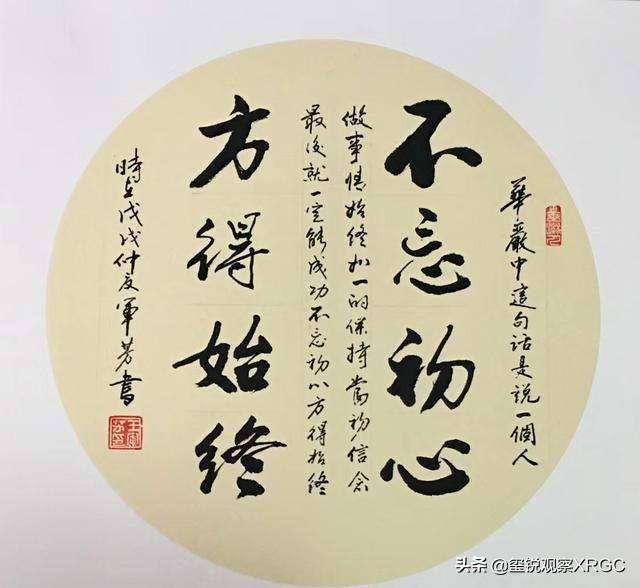 華嚴中這句話是說一個人
不忘初心
做事情始終如一的保持當初信念
最後就一定能成功不忘初心方得始終
方得始終
時在戊戌仲夏軍芳書
头条 @玺锐观察XRGC